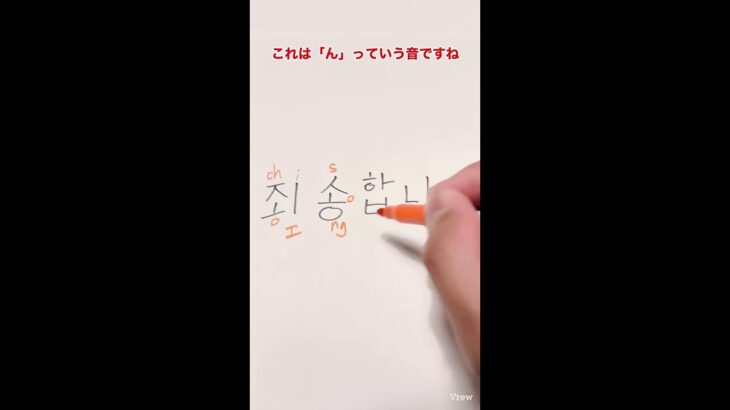 これは「ん」っていう音ですね
ch i s
죄송합
o o
エ ng
Vrew